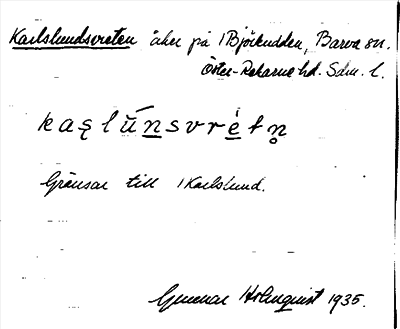 Karlslundsvreten åker på 1 Björkudden, Barva sn.
Öster-Rekarne hd. Sdm. l.
kaşlúnsvrètn̥
Gränsar till 1 Karlslund.
Gunnar Holmquist 1935.